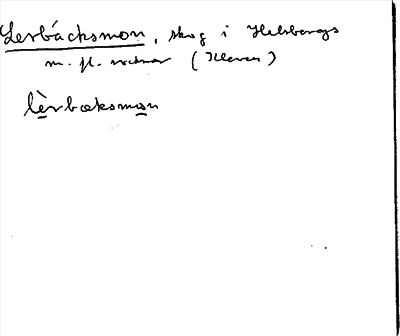 Lerbäcksmon, skog i Helsbergs
m. fl. rotnar (Kleven)
lèrbæksmon